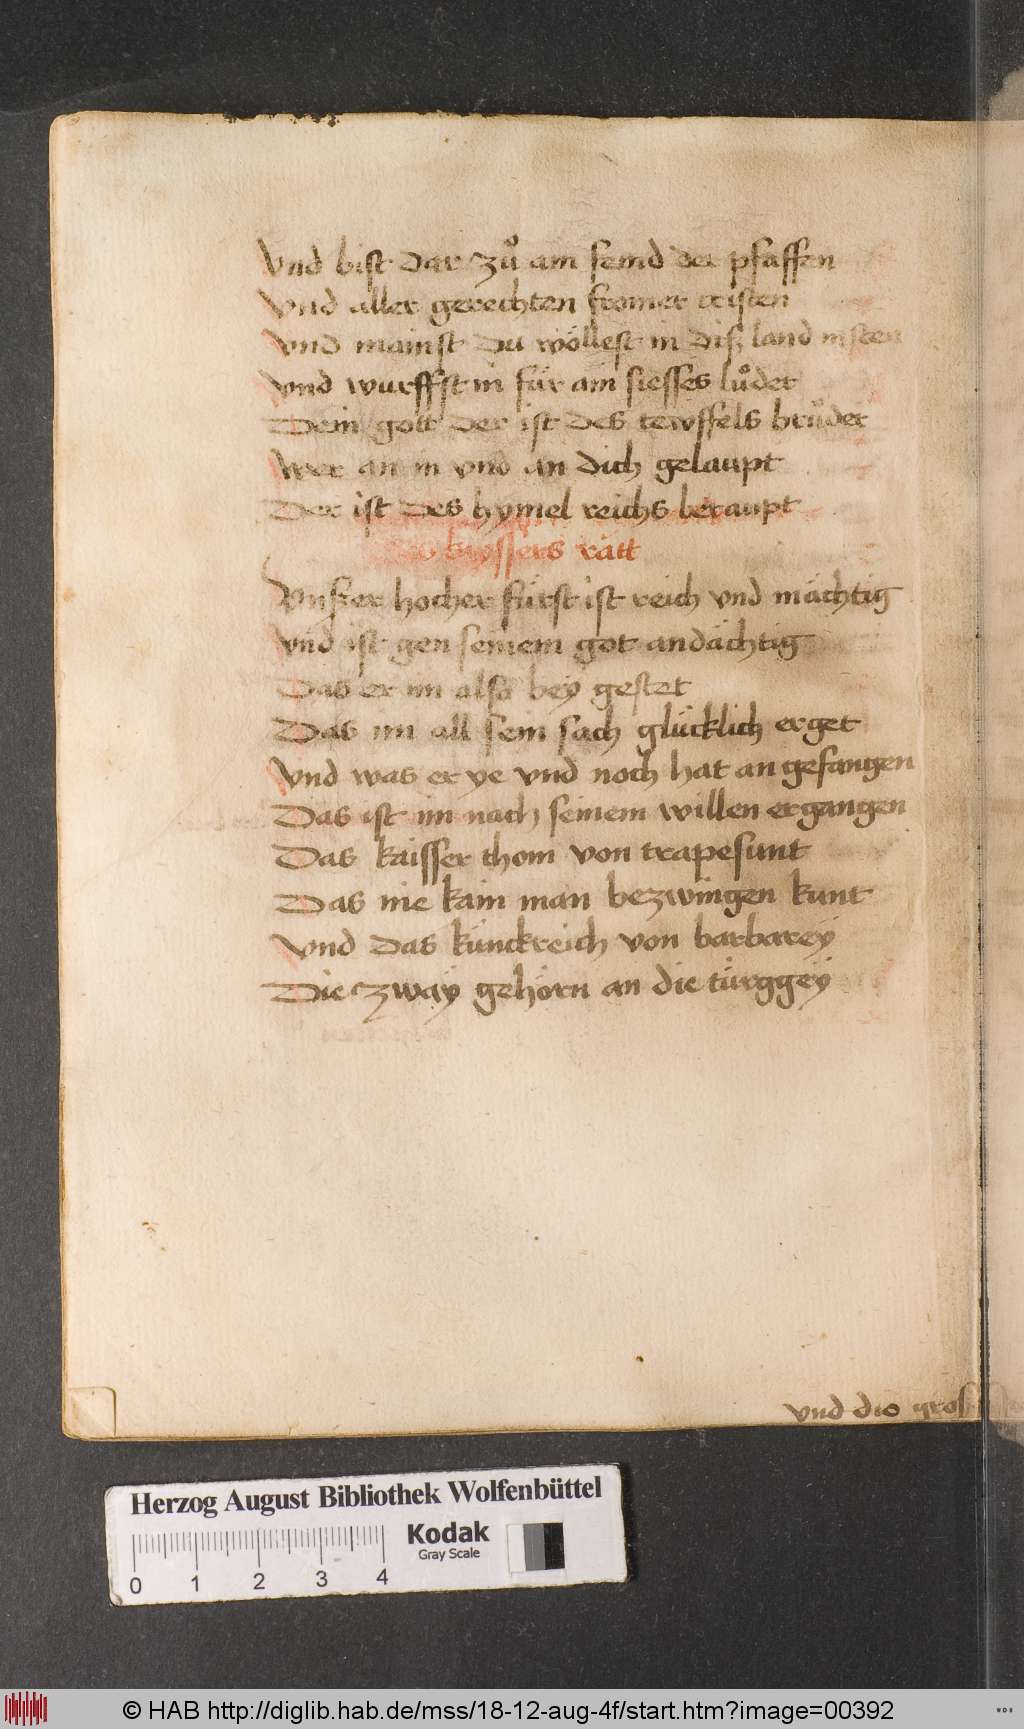 Vnd bist dar zuͦ am feind der pfaffen
Vnd aller gerechten fromer cristen
Vnd mainst du wöllest in diß land nisten
Vnd wurffst in für ain siesses luͦder
Dein gott der ist des tewffels bruͦder
Wer an in vnd an dich gelaupt
Der ist des hymel reichs beraupt
kayssers rätt
Vnßer hocher fürst ist reich vnd mächtig
Vnd ist gen seinem got andächtig
Das er im also bey gestet
Das im all sein sach glücklich erget
Vnd was er ye vnd noch hat an gefangen
Das ist im nach seinem willen ergangen
Das kaisser thom von trapesunt
Das nie kain man bezwingen kunt
Vnd das künckreich von barbareÿ
Die zwaÿ gehörn an die türggeÿ
vnd die gros
Herzog August Bibliothek Wolfenbüttel
Kodak
Gray Scale
0 1 2 3 4
© HAB http://diglib.hab.de/mss/18-12-aug-4f/start.htm?image=00392